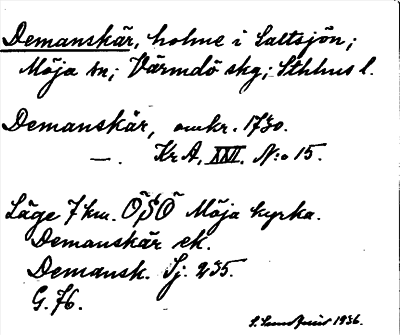 Demanskär, holme i Saltsjön;
Möja sn; Värmdö skg; Sthlms l.
Demanskär, omkr. 1730.
—. Kr A, XXVI. N:o 15.
Läge 7 km. ÖSÖ Möja kyrka.
Demanskär ek.
Demansk. Sj. 235.
G. 76.
1936.